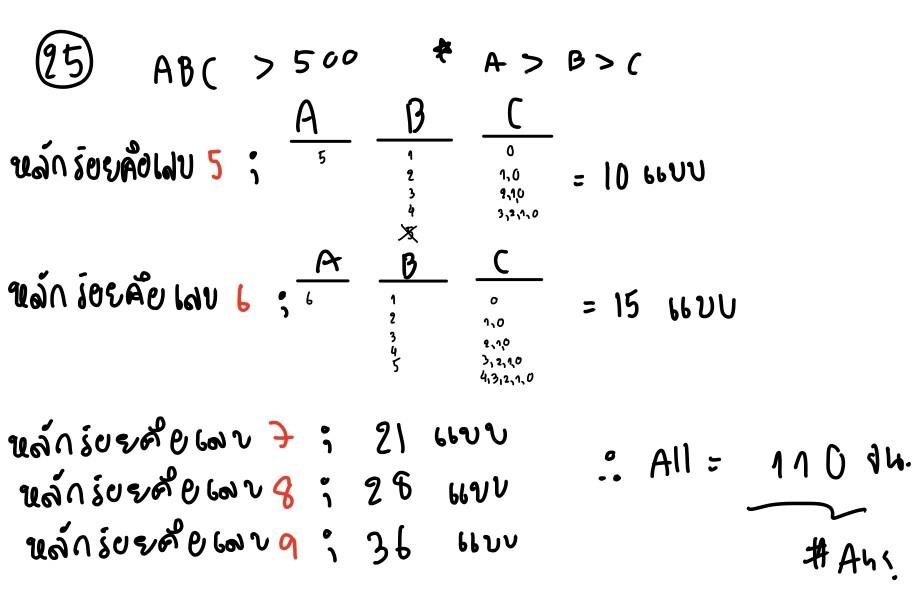 25 ABC > 500 * A > B > C
A B C
หลักร้อยคือเลข 5 ; 5 1 0
2 1,0 = 10 แบบ
3 2,1,0
4 3,2,1,0
5
A B C
หลักร้อยคือเลข 6 ; 6 1 0 = 15 แบบ
2 1,0
3 2,1,0
4 3,2,1,0
5 4,3,2,1,0
หลักร้อยคือเลข 7 ; 21 แบบ
หลักร้อยคือเลข 8 ; 28 แบบ
หลักร้อยคือเลข 9 ; 36 แบบ
∴ All = 110 จน.
#Ans.